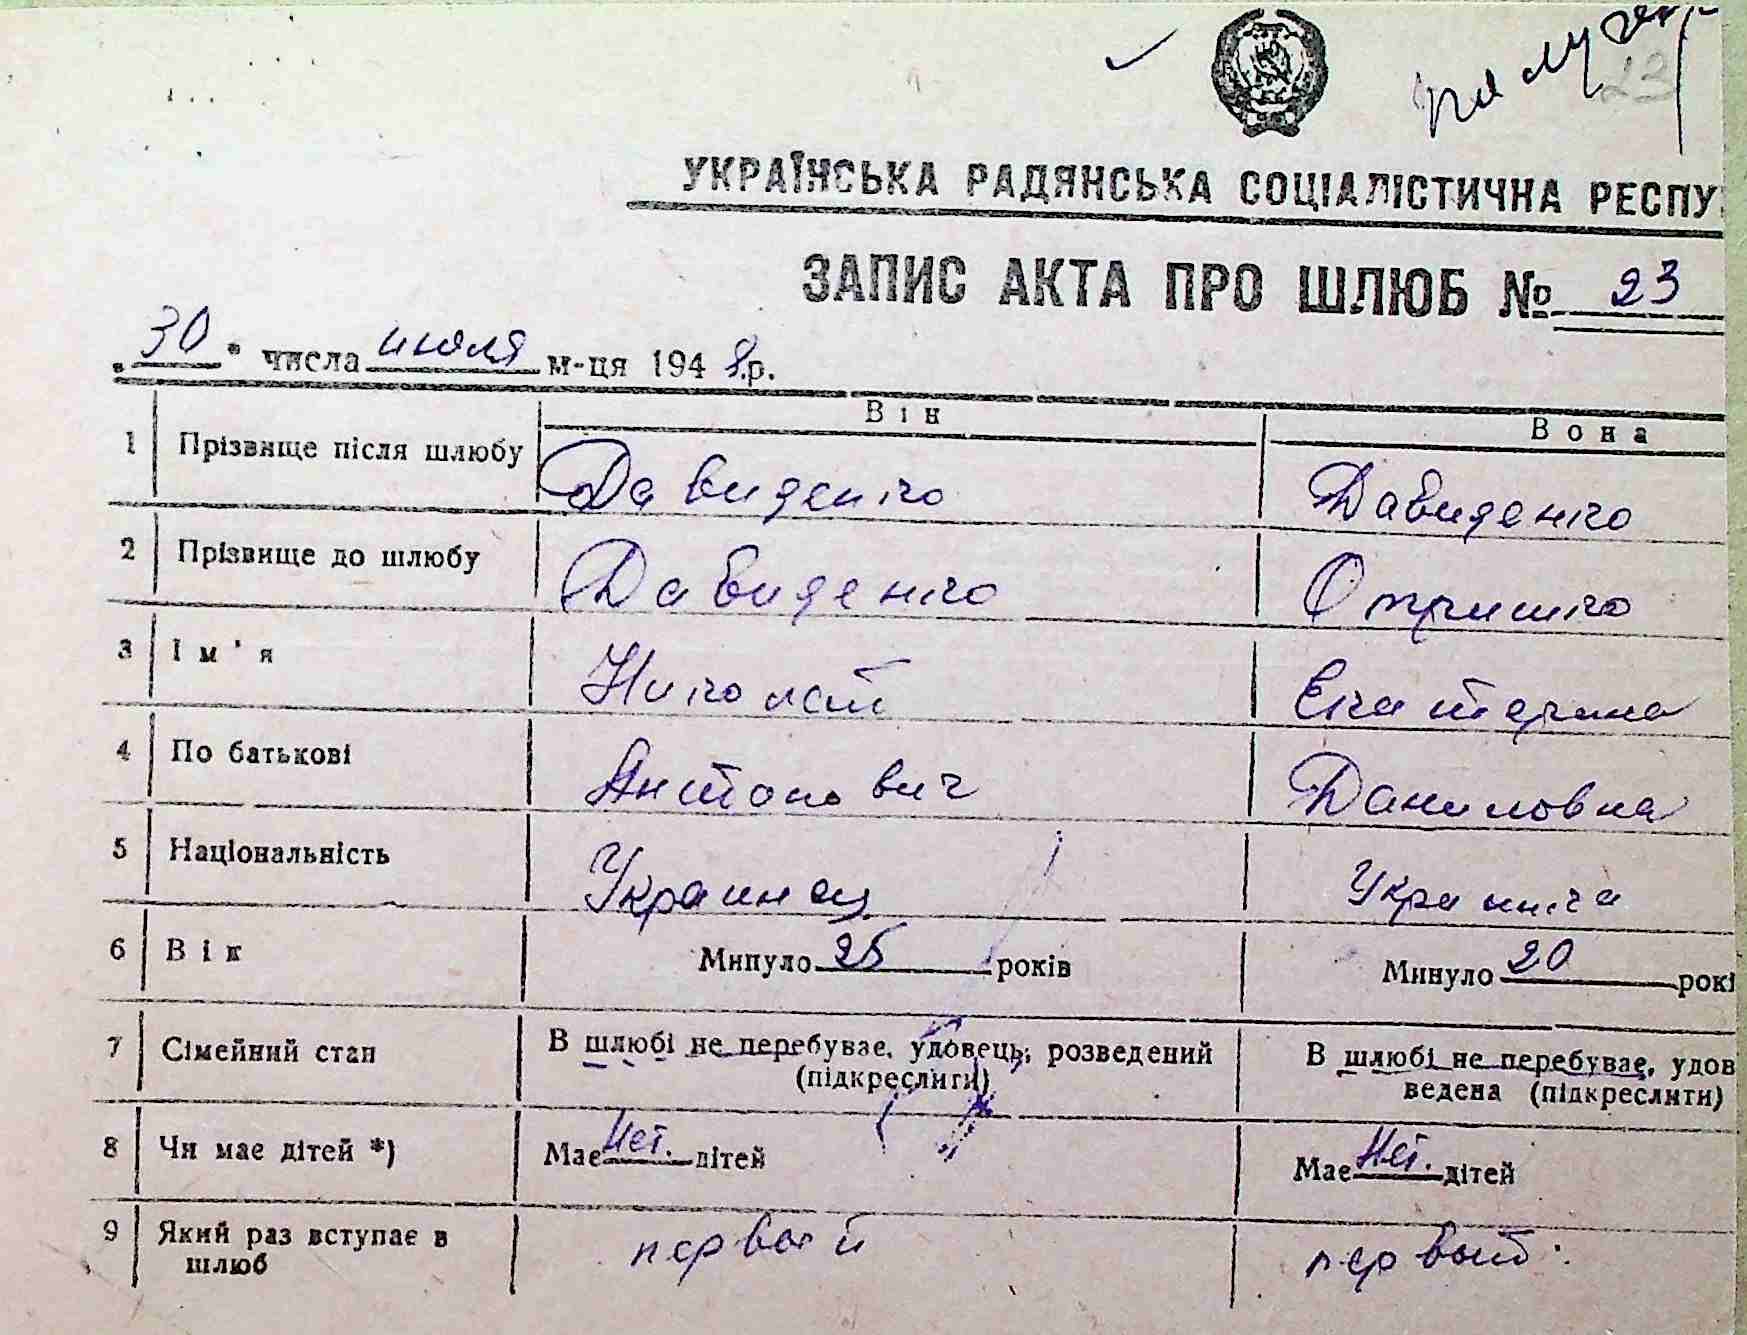 23
УКРАЇНСЬКА РАДЯНСЬКА СОЦІАЛІСТИЧНА РЕСПУ
ЗАПИС АКТА ПРО ШЛЮБ № 23
„30" числа июля м-ця 1948 р.
Він Вона
1 Прізвище після шлюбу Давиденко Давиденко
2 Прізвище до шлюбу Давиденко Отришко
3 Ім'я Николай Екатерина
4 По батькові Антонович Даниловна
5 Національність Украинец Украинка
6 Вік Минуло 25 років Минуло 20 рокі
7 Сімейний стан В шлюбі не перебуває, удовець, розведений В шлюбі не перебуває, удов
(підкреслити) ведена (підкреслити)
8 Чи має дітей *) Має Нет. дітей Має Нет. дітей
9 Який раз вступає в первый первый
шлюб